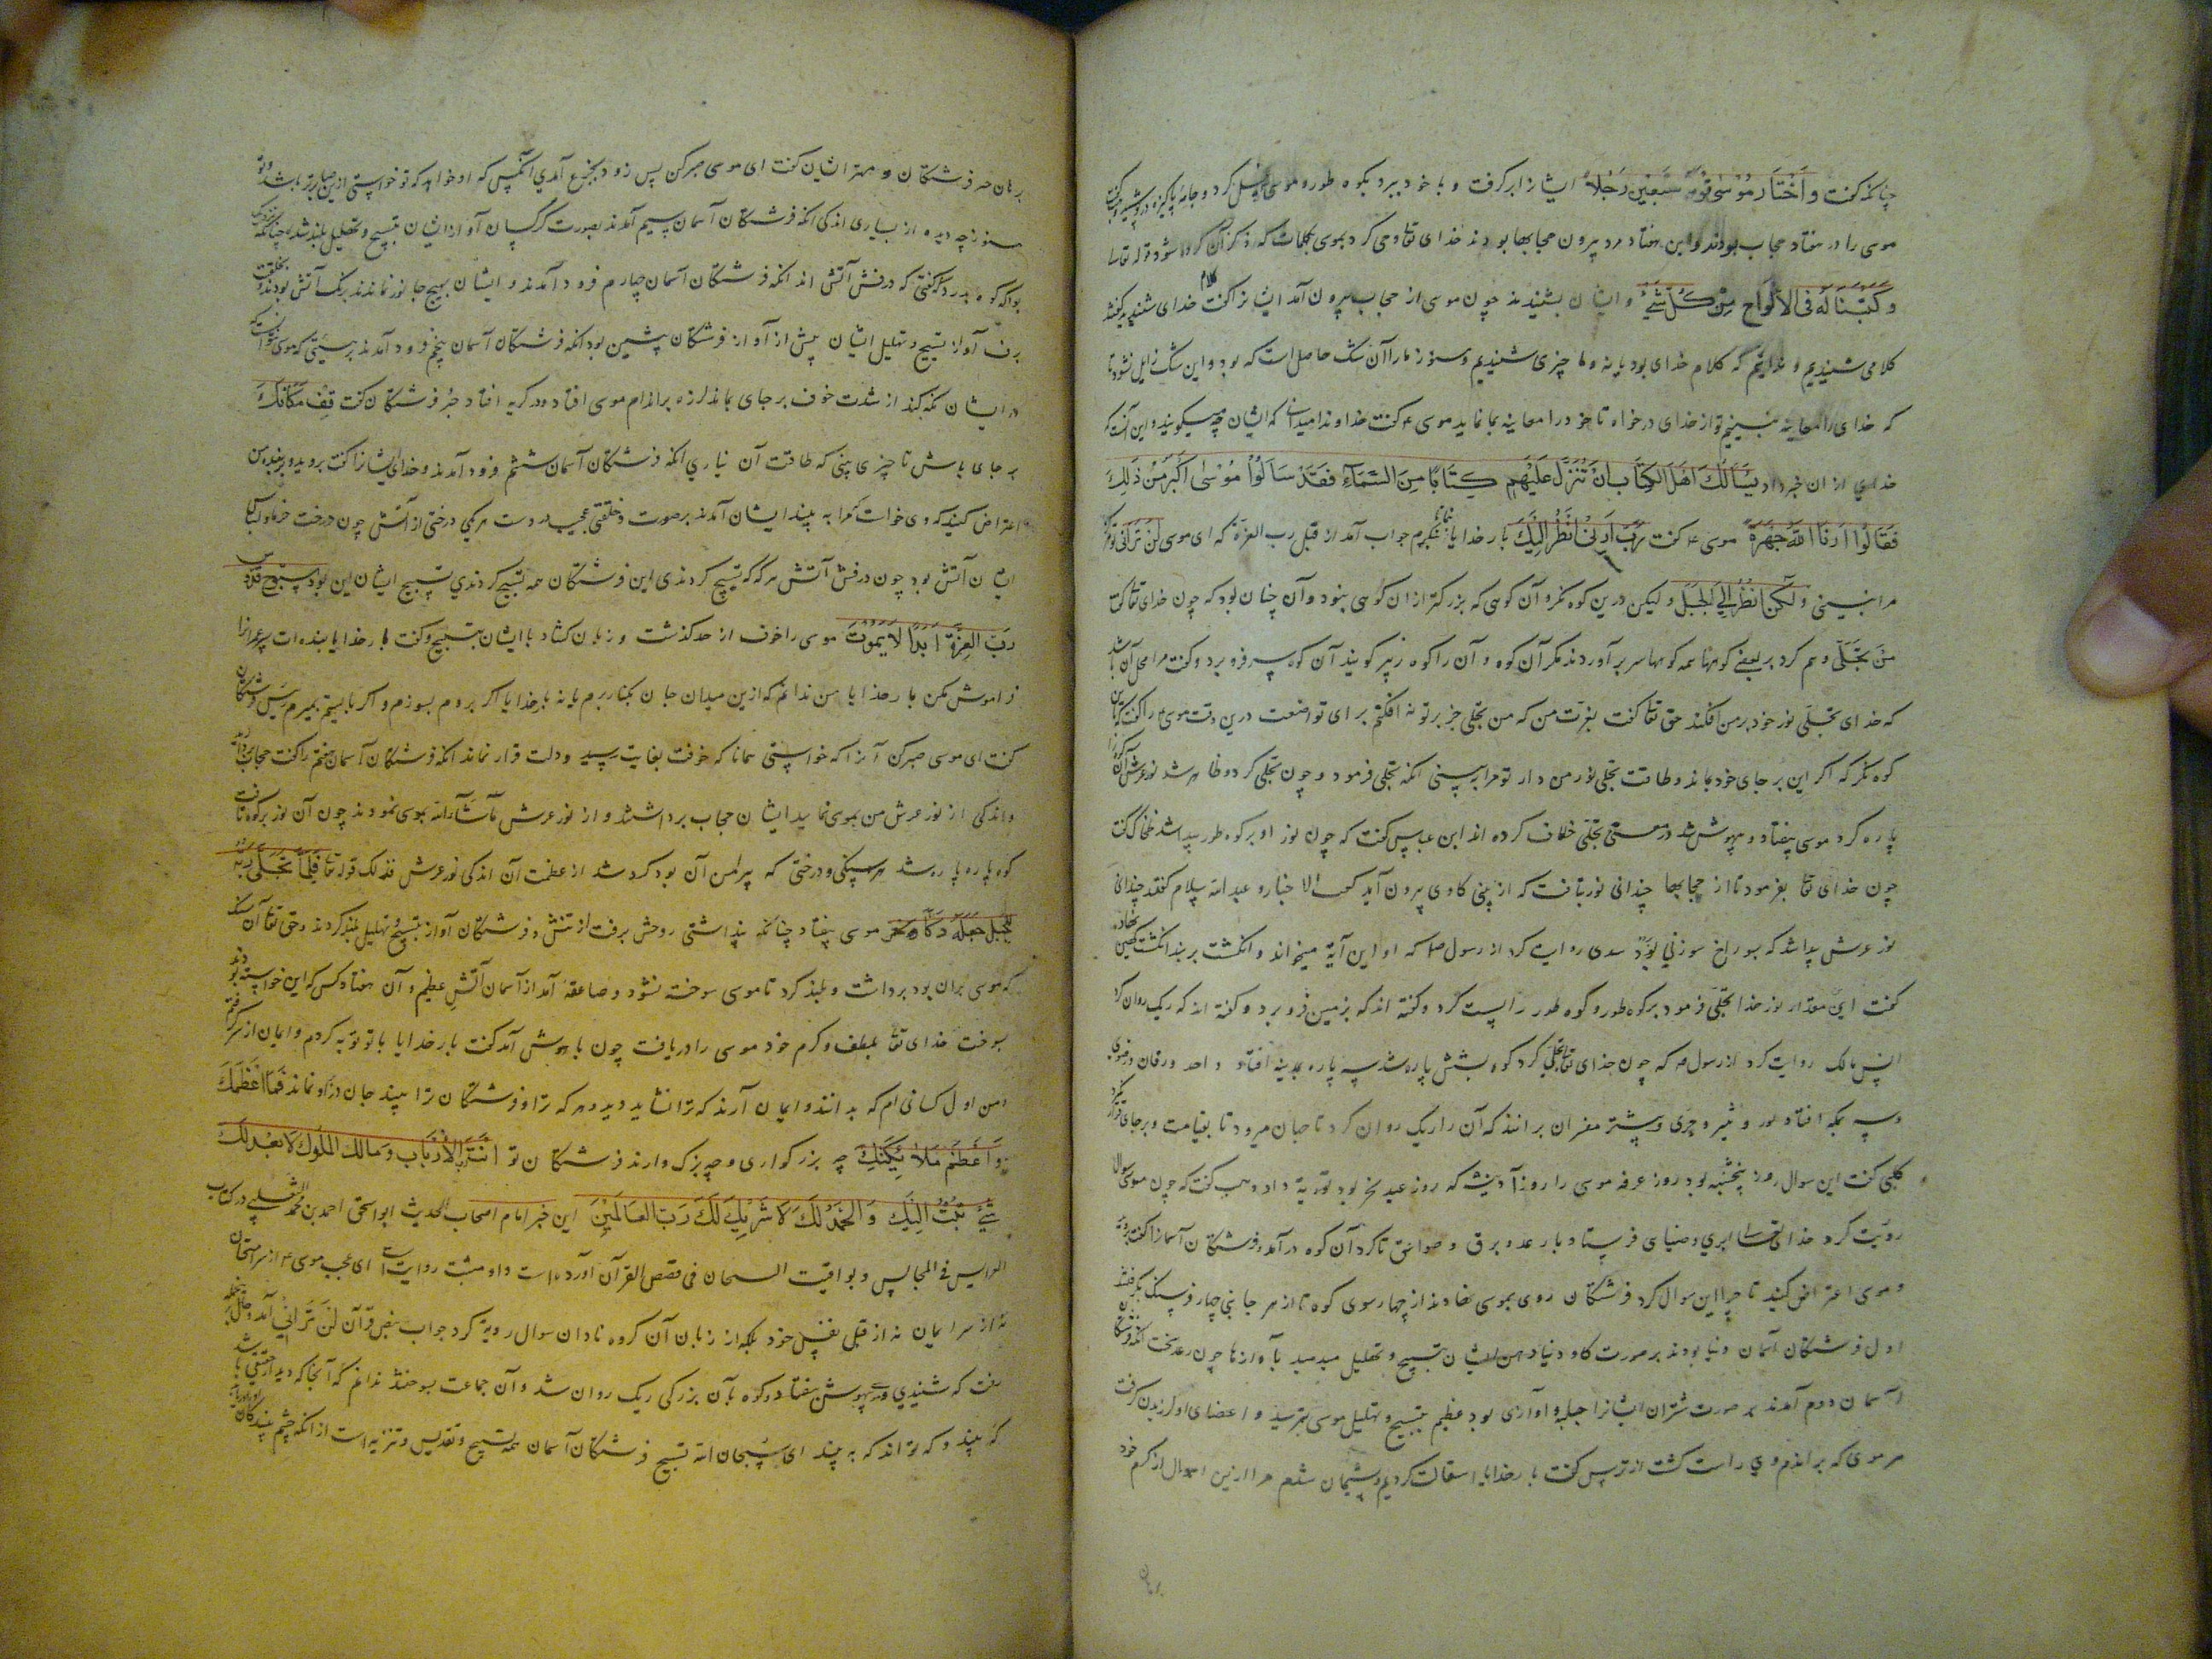 چنانکه گفت وَاخْتَارَ مُوسَى قَوْمَهُ سَبْعِينَ رَجُلًا ایشانرا برگرفت و با خود ببرد بکوه طور و موسی غسل کرد و جامه پاکیزه در پوشید
موسی را در هفتاد حجاب بودند و این هفتاد مرد بیرون حجابها بودند خدای تعا وحی کرد بموسی بکلماتی که ذکر آن کرده شود قوله تعا
وَكَتَبْنَا لَهُ فِى الْأَلْوَاحِ مِنْ كُلِّ شَيْءٍ و ایشان بشنیدند چون موسی از حجاب بیرون آمد ایشانرا گفت کلام خدای شنیدید گفتند
کلامی شنیدیم و ندانیم که کلام خدای بود یا نه و ما چیزی شنیدیم و هنوز ما را آن شک حاصل است که بود و این شک زایل نشود تا
که خدای را معاینه نبینیم تو از خدای درخواه تا خود را معاینه بما نماید موسی ع گفت خداوندا میدانی که ایشان چه میگویند و این آنست که
خدای از ان خبر داد يَسْأَلُكَ أَهْلُ الْكِتَابِ أَنْ تُنَزِّلَ عَلَيْهِمْ كِتَابًا مِنَ السَّمَاءِ فَقَدْ سَأَلُوا مُوسَى أَكْبَرَ مِنْ ذَلِكَ
فَقَالُوا أَرِنَا اللَّهَ جَهْرَةً موسی ع گفت رَبِّ أَرِنِي أَنْظُرْ إِلَيْكَ بار خدایا بنما تا بنگرم جواب آمد از قبل رب العزة که ای موسی لَنْ تَرَانِي تو هرگز
مرا نبینی وَلَكِنِ انْظُرْ إِلَى الْجَبَلِ و لیکن درین کوه نگر و آن کوهی که بزرگتر از ان کوهی بنود و آن چنان بود که چون خدای تعا گفت
من تجلی وهم کرد بر بعضی کوهها همه کوهها سر برآوردند مگر آن کوه و آن را کوه زبیر گویند آن کوه سر فرو برد و گفت مرا محل آن باشد
که خدای تجلی نور خود بر من افکند حق تعا گفت بعزت من که من تجلی جز بر تو نه افکنم برای تواضعت درین وقت موسی را گفت باین
کوه نگر که اگر این بر جای خود بماند و طاقت تجلی نور من دارد تو مرا به بینی انگه تجلی فرمود و چون تجلی کرد و ظاهر شد نور عرش آن کوه را
پاره کرد موسی بیفتاد و بیهوش شد در معنی تجلی خلاف کرده اند ابن عباس گفت که چون نور او بر کوه طور پیدا شد ضحاک گفت
چون خدای تعا بفرمود تا از حجابها چندانی نور بتافت که از بینی گاوی بیرون آید کعب الاحبار و عبد الله سلام گفتند چندانی
نور عرش پیدا شد که بسوراخ سوزنی بود سدی روایت کرد از رسول ص که او این آیه میخواند و انگشت بر بند انگشت کهین نهاده
گفت این مقدار نور خدا تجلی فرمود بر کوه طور و کوه طور را پست کرد و گفته اند که بزمین فرو برد و گفته اند که ریک روان کرد
انس مالک روایت کرد از رسول ص که چون خدای تعا تجلی کرد کوه بشش پاره شد سه پاره بمدینه افتاد و احد و ورقان و رضوی
و سه بمکه افتاد ثور و ثبیر و حری و بیشتر مفسران برانند که آن را ریک روان کرد تا جهان میرود تا بقیامت و بر جای قرار نگیرد
کلبی گفت این سوال روز پنجشنبه بود روز عرفه موسی را روز آدینه که روز عید نحر بود توریة داد وهب گفت که چون موسی سوال
رویت کرد خدای تعا ابری و ضبابی فرستاد با رعد و برق و صواعق تا گرد آن کوه درآمد و فرشتکان آسمانرا گفت بروید
و موسی اعتراض کنید تا چرا این سوال کرد فرشتکان روی بموسی نهادند از چهار سوی کوه تا از هر جانبی چهار فرسنک بگرفتند
اول فرشتکان آسمان دنیا بودند بر صورت گاو دنیا دهن ایشان تسبیح و تهلیل میدمید باوازها چون رعد سخت انگه فرشتکان
آسمان دوم آمدند بر صورت شیران ایشانرا جلبه و اوازی بود عظیم تسبیح و تهلیل موسی بترسید و اعضای او لرزیدن گرفت
هر موی که بر اندام وی راست گشت از ترس گفت بار خدایا استقالت کردم و پشیمان شدم مرا ازین احوال از کرم خود
برهان
برهان سر فرشتکان و مهتر ایشان گفت ای موسی صبر کن پس زود بجزع آمدی آنکس که او خواهد که تو خواستی ازین صابرتر باشد و تو
هنوز چه دیده از بسیاری اندکی انگه فرشتکان آسمان سیم آمدند بصورت کرکسان آواز ایشان بتسبیح و تهلیل بلند شد چنانکه نزدیک
بود که کوه بدرد گفتی که درفش آتش اند انگه فرشتکان آسمان چهارم فرود آمدند و ایشان بهیچ جانور نماندند برنک آتش بودند و بخلقت
برف آواز تسبیح و تهلیل ایشان بیش از آواز فرشتکان پیشین بود انگه فرشتکان آسمان پنجم فرود آمدند بر هیئتی که موسی نتوانست که
در ایشان نگه کند از شدت خوف بر جای بماند لرزه بر اندام موسی افتاد و در گریه افتاد حبر فرشتکان گفت قِفْ مَكَانَكَ
بر جای باش تا چیزی بینی که طاقت آن نیاری انگه فرشتکان آسمان ششم فرود آمدند و خدای ایشانرا گفت بروید و بر بنده من
اعتراض کنید که وی خواست که مرا به بیند ایشان آمدند بر صورت و خلقتی عجیب در دست هر یکی درختی از آتش چون درخت خرما و لباس
ایشان آتش بود چون درفش آتش هر گه که تسبیح کردندی این فرشتکان همه تسبیح کردندی تسبیح ایشان این بود سبوح قدوس
رَبُّ الْعِزَّةِ أَبَدًا لَا يَمُوتُ موسی را خوف از حد گذشت و زبان گشاد با ایشان بتسبیح و گفت بار خدایا بنده ات پسر عمران را
فراموش مکن بار خدایا من ندانم که ازین میدان جان بکنار برم یا نه بار خدایا اگر بروم بسوزم و اگر بایستم بمیرم رئیس فرشتکان
گفت ای موسی صبر کن آنرا که خواستی همانا که خوفت بغایت رسید و دلت قرار نماند انگه فرشتکان آسمان هفتم را گفت حجاب بردارید
و اندکی از نور عرش من بموسی نمایید ایشان حجاب برداشتند و از نور عرش ما شاء الله بموسی نمودند چون آن نور بر کوه تافت
کوه پاره پاره شد هر سنگی و درختی که پیرامن آن بود گرد شد از عظمت آن اندکی نور عرش فذلک قوله تعا فَلَمَّا تَجَلَّى رَبُّهُ
لِلْجَبَلِ جَعَلَهُ دَكًّا وَخَرَّ موسی بیفتاد چنانکه پنداشتی روحش برفت از تنش و فرشتکان آواز بتسبیح و تهلیل بلند کردند و حق تعا آن سنک
که موسی بران بود برداشت و بلند کرد تا موسی سوخته نشود و صاعقه آمد از آسمان آتش عظیم و آن هفتاد کس که این خواسته بودند
بسوخت خدای تعا بلطف و کرم خود موسی را دریافت چون با هوش آمد گفت بار خدایا با تو توبه کردم و ایمان از سر گرفتم
و من اول کسانی ام که بدانند و ایمان آرند که ترا نشاید دید و هر که ترا و فرشتکان ترا بیند جان در او نماند فَمَا أَعْظَمَكَ
وَأَعْظَمَ مَلَائِكَتَكَ چه بزرگواری و چه بزرک وارند فرشتکان تو أَنْتَ رَبُّ الْأَرْبَابِ وَمَالِكُ الْمُلُوكِ لَا يَعْدِلُكَ
شَيْءٌ تُبْتُ إِلَيْكَ وَالْحَمْدُ لَكَ لَا شَرِيكَ لَكَ رَبَّ الْعَالَمِينَ این خبر امام اصحاب الحدیث ابو اسحق احمد بن محمد الثعلبی در کتاب
العرایس فی المجالس و یواقیت التیجان فی قصص القرآن آورده است و او مثبت روایت است ای عجب موسی ع از سر امتحان
نه از سر ایمان نه از قبل نفس خود بلکه از زبان آن گروه نادان سوال رویة کرد جواب بنص قرآن لَنْ تَرَانِي آمد
رفت که شنیدی و بیهوش بیفتاد و کوه بآن بزرگی ریک روان شد و آن جماعت بسوختند ندانم که آنجا که دیدار حقیقی باشد
که بیند و که تواند که به بیند ای سبحان الله تسبیح فرشتکان آسمان همه تسبیح و تقدیس و تنزیه است از انکه چشم بینندگان